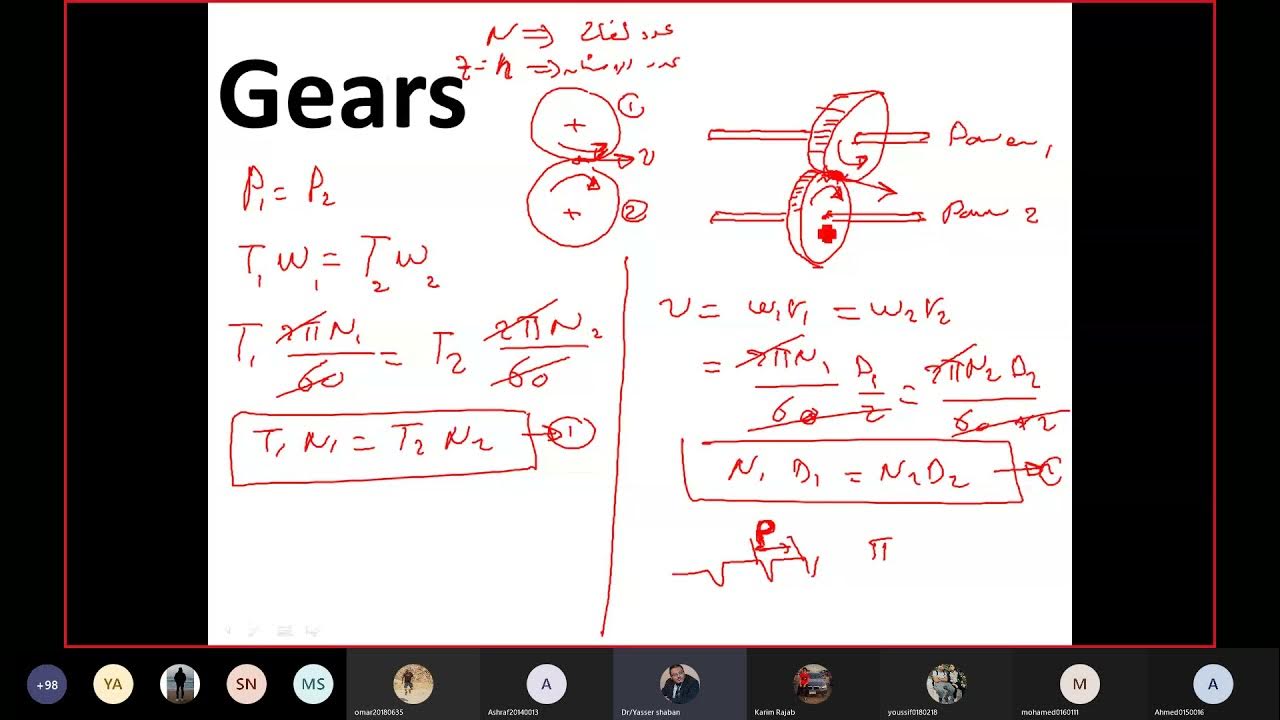 N ⇒ عدد لفات
z = n ⇒ عدد
Gears
①
②
v
Power 1
Power 2
P₁ = P₂
T₁ W₁ = T₂ W₂
T₁ 2πN₁/60 = T₂ 2πN₂/60
T₁ N₁ = T₂ N₂ → ①
v = w₁r₁ = w₂r₂
= 2πN₁/60 D₁/2 = 2πN₂ D₂/60 * 2
N₁ D₁ = N₂ D₂ →
P
π
+98
YA
SN
MS
omar20180635
A
Ashraf20140013
Dr/Yasser shaban
Karim Rajab
youssif0180218
M
mohamed0160111
A
Ahmed0150016